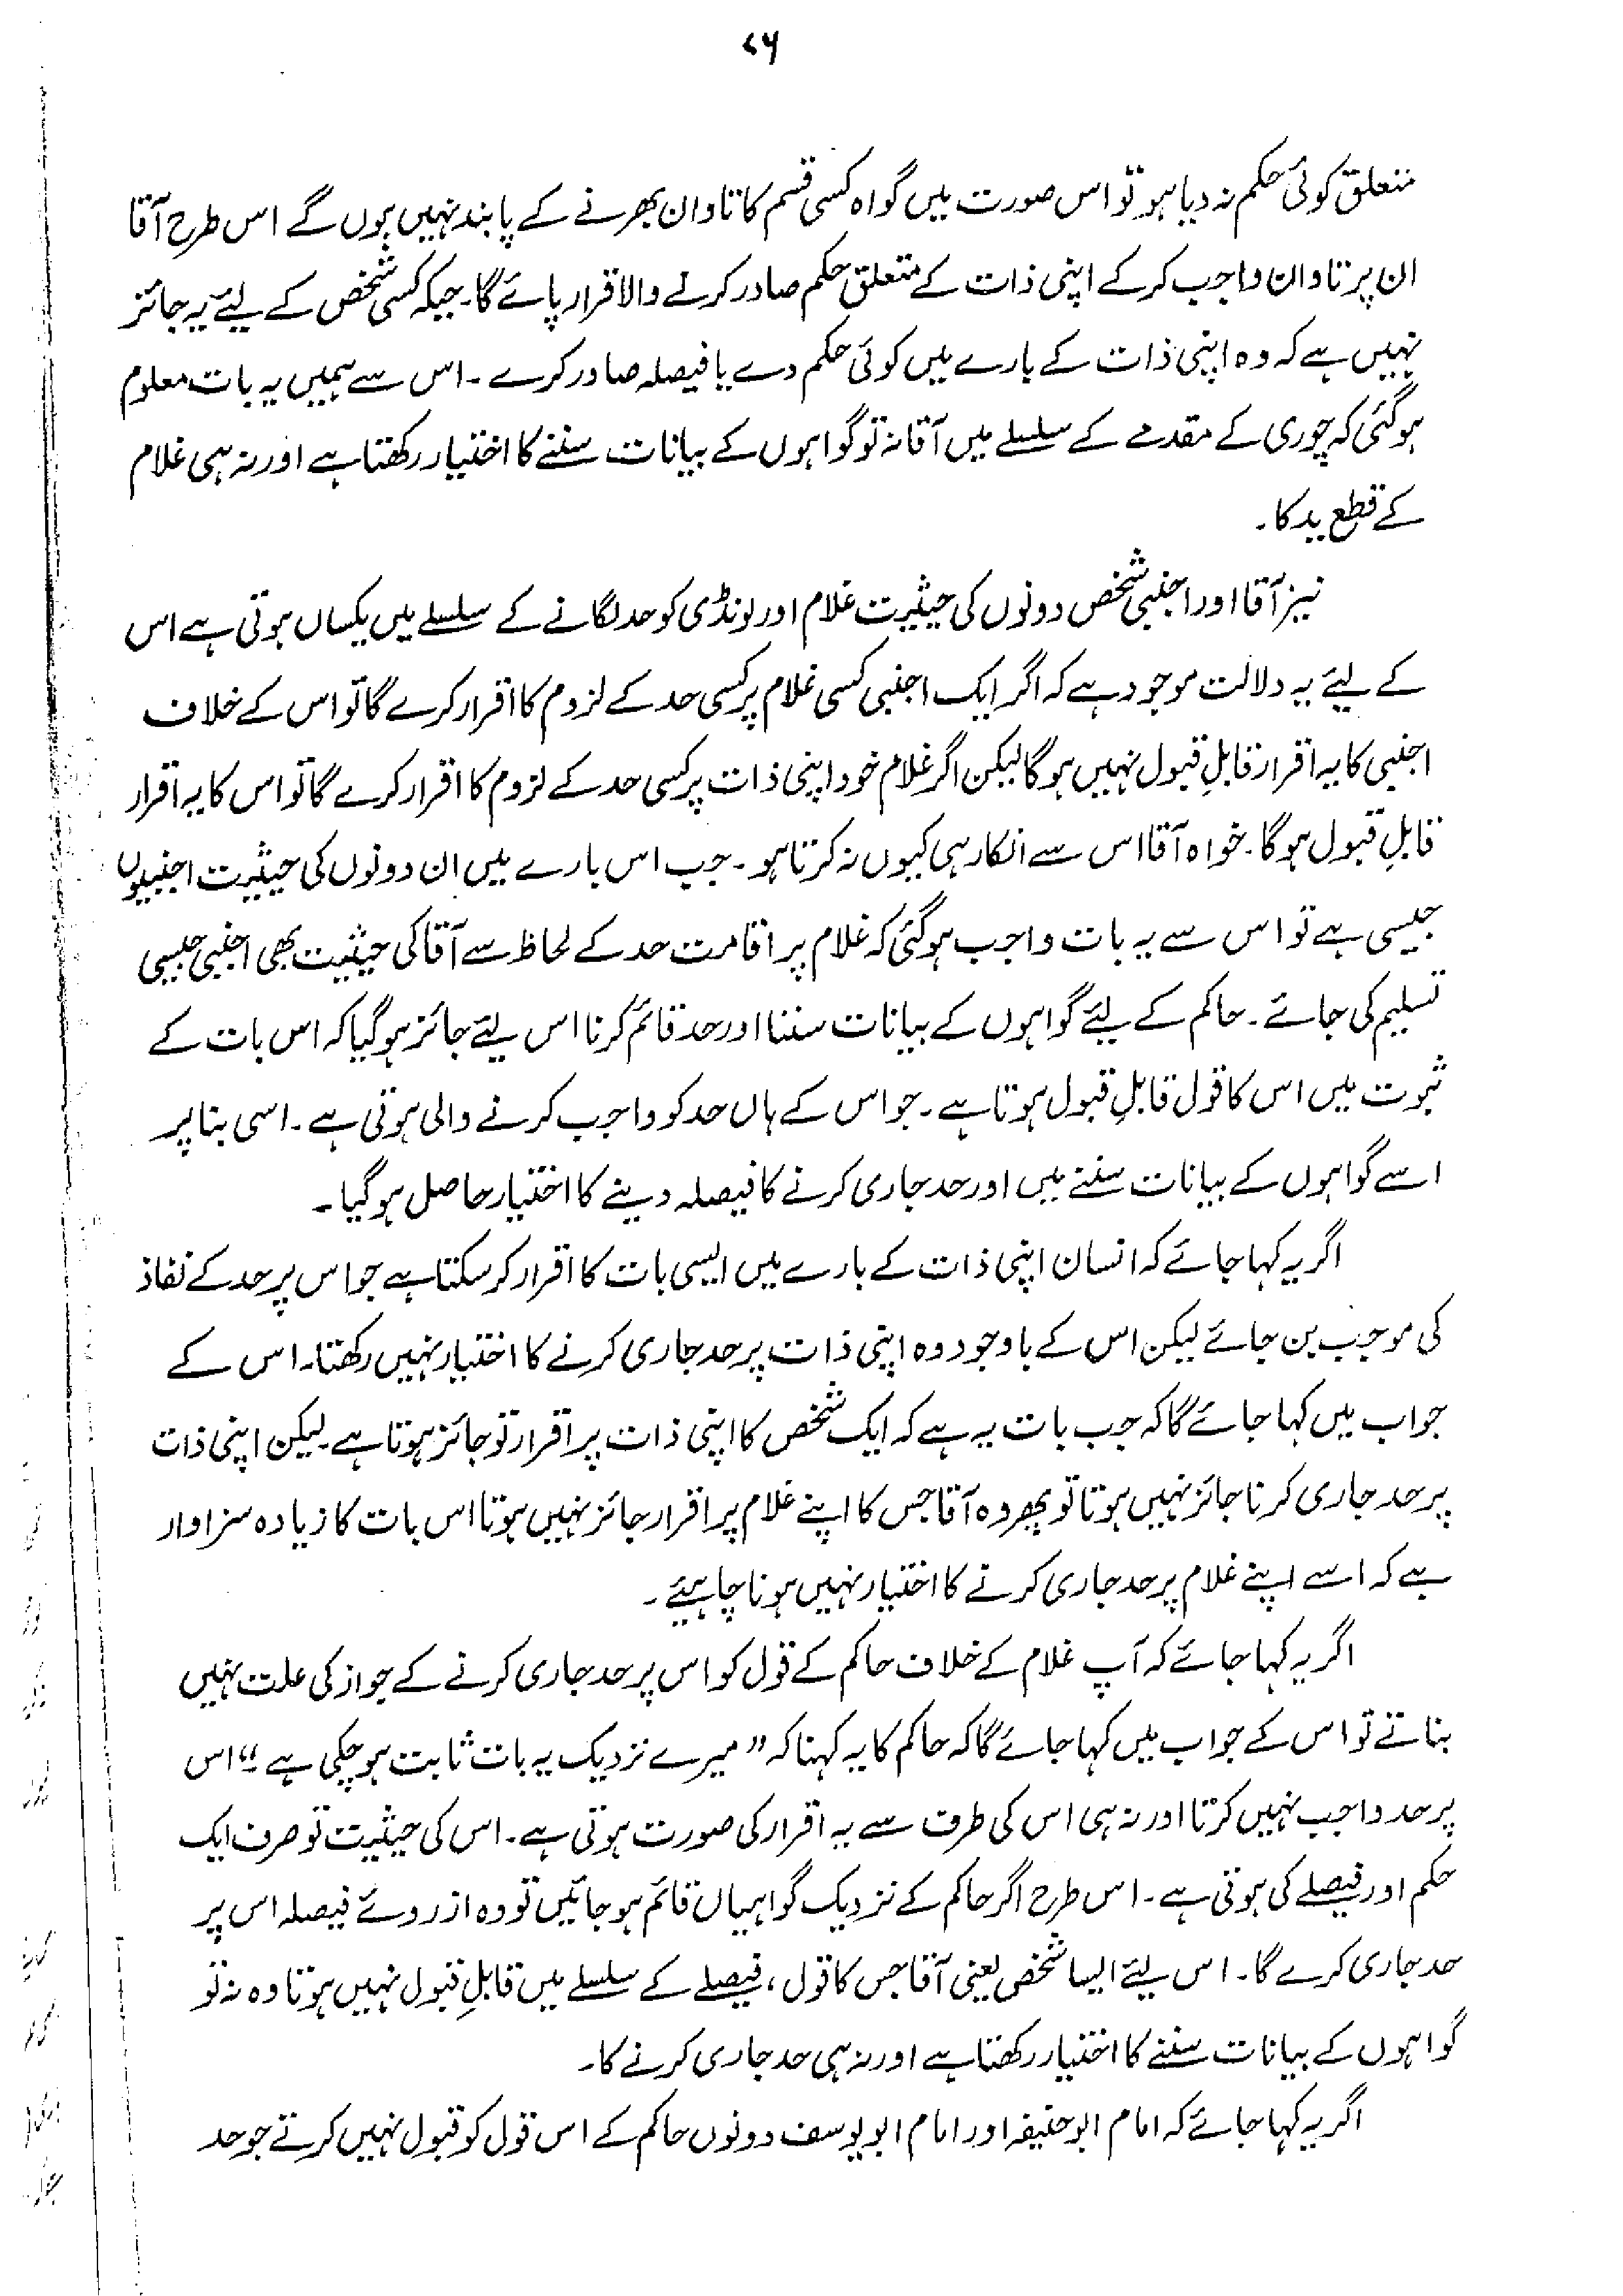 ۷۶
متعلق کوئی حکم نہ دیا ہو تو اس صورت میں گواہ کسی قسم کا تاوان بھرنے کے پابند نہیں ہوں گے اس طرح آقا
ان پر تاوان واجب کرکے اپنی ذات کے متعلق حکم صادر کرنے والا قرار پائے گا۔ جبکہ کسی شخص کے لیئے یہ جائز
نہیں ہے کہ وہ اپنی ذات کے بارے میں کوئی حکم دے یا فیصلہ صادر کرے۔ اس سے ہمیں یہ بات معلوم
ہوگئی کہ چوری کے مقدمے کے سلسلے میں آقا نہ تو گواہوں کے بیانات سننے کا اختیار رکھتا ہے اور نہ ہی غلام
کے قطع ید کا۔
نیز آقا اور اجنبی شخص دونوں کی حیثیت غلام اور لونڈی کو حد لگانے کے سلسلے میں یکساں ہوتی ہے اس
کے لیئے یہ دلالت موجود ہے کہ اگر ایک اجنبی کسی غلام پر کسی حد کے لزوم کا اقرار کرے گا تو اس کے خلاف
اجنبی کا یہ اقرار قابلِ قبول نہیں ہوگا لیکن اگر غلام خود اپنی ذات پر کسی حد کے لزوم کا اقرار کرے گا تو اس کا یہ اقرار
قابلِ قبول ہوگا۔ خواہ آقا اس سے انکار ہی کیوں نہ کرتا ہو۔ جب اس بارے میں ان دونوں کی حیثیت اجنبیوں
جیسی ہے تو اس سے یہ بات واجب ہوگئی کہ غلام پر اقامت حد کے لحاظ سے آقا کی حیثیت بھی اجنبی جیسی
تسلیم کی جائے۔ حاکم کے لیئے گواہوں کے بیانات سننا اور حد قائم کرنا اس لیئے جائز ہوگیا کہ اس بات کے
ثبوت میں اس کا قول قابلِ قبول ہوتا ہے۔ جو اس کے ہاں حد کو واجب کرنے والی ہوتی ہے۔ اسی بنا پر
اسے گواہوں کے بیانات سننے میں اور حد جاری کرنے کا فیصلہ دینے کا اختیار حاصل ہوگیا۔
اگر یہ کہا جائے کہ انسان اپنی ذات کے بارے میں ایسی بات کا اقرار کرسکتا ہے جو اس پر حد کے نفاذ
کی موجب بن جائے لیکن اس کے باوجود وہ اپنی ذات پر حد جاری کرنے کا اختیار نہیں رکھتا۔ اس کے
جواب میں کہا جائے گا کہ جب بات یہ ہے کہ ایک شخص کا اپنی ذات پر اقرار تو جائز ہوتا ہے۔ لیکن اپنی ذات
پر حد جاری کرنا جائز نہیں ہوتا تو پھر وہ آقا جس کا اپنے غلام پر اقرار جائز نہیں ہوتا اس بات کا زیادہ سزاوار
ہے کہ اسے اپنے غلام پر حد جاری کرنے کا اختیار نہیں ہونا چاہیئے۔
اگر یہ کہا جائے کہ آپ غلام کے خلاف حاکم کے قول کو اس پر حد جاری کرنے کے جواز کی علت نہیں
بناتے تو اس کے جواب میں کہا جائے گا کہ حاکم کا یہ کہنا کہ ”میرے نزدیک یہ بات ثابت ہوچکی ہے“ اس
پر حد واجب نہیں کرتا اور نہ ہی اس کی طرف سے یہ اقرار کی صورت ہوتی ہے۔ اس کی حیثیت تو صرف ایک
حکم اور فیصلے کی ہوتی ہے۔ اس طرح اگر حاکم کے نزدیک گواہیاں قائم ہوجائیں تو وہ ازروئے فیصلہ اس پر
حد جاری کرے گا۔ اس لیئے ایسا شخص یعنی آقا جس کا قول، فیصلے کے سلسلے میں قابلِ قبول نہیں ہوتا وہ نہ تو
گواہوں کے بیانات سننے کا اختیار رکھتا ہے اور نہ ہی حد جاری کرنے کا۔
اگر یہ کہا جائے کہ امام ابوحنیفہ اور امام ابویوسف دونوں حاکم کے اس قول کو قبول نہیں کرتے جو حد